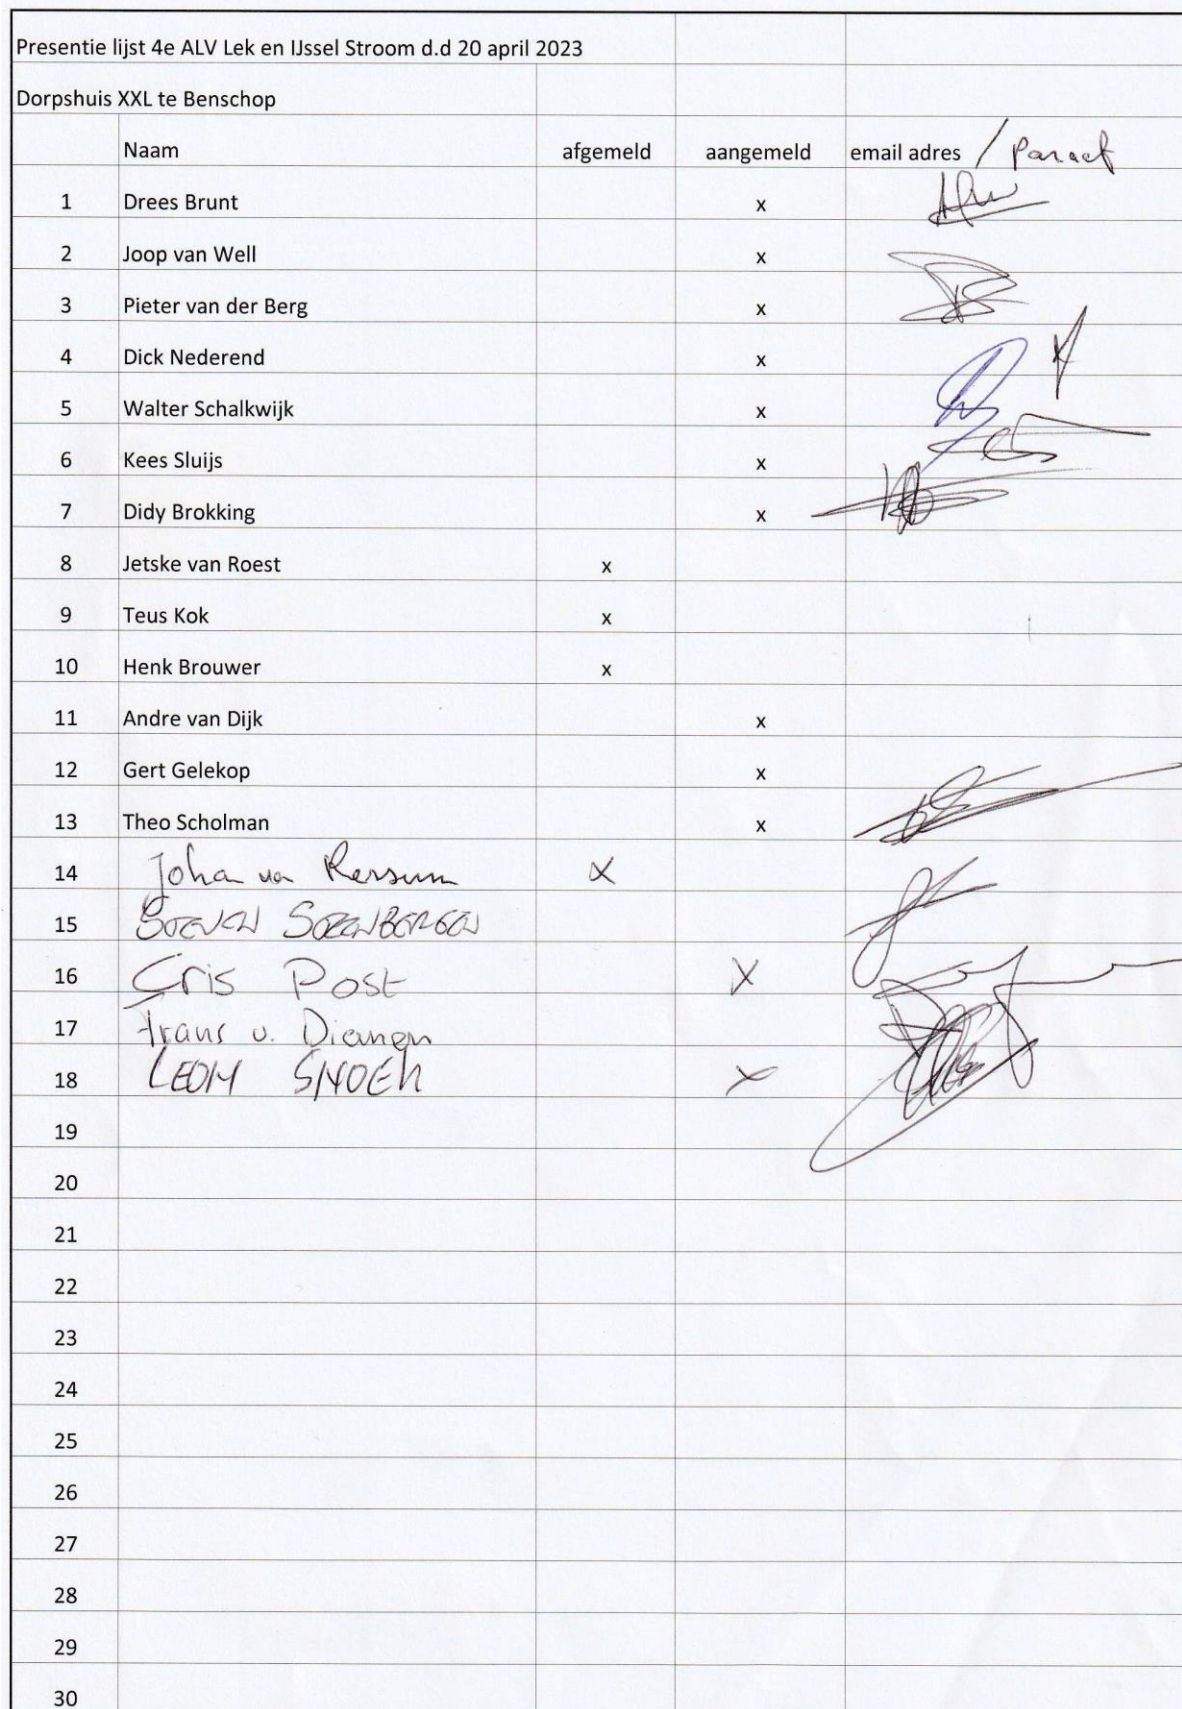 Presentie lijst 4e ALV Lek en IJssel Stroom d.d 20 april 2023
Dorpshuis XXL te Benschop
Naam afgemeld aangemeld email adres / Paraaf
1 Drees Brunt x
2 Joop van Well x
3 Pieter van der Berg x
4 Dick Nederend x
5 Walter Schalkwijk x
6 Kees Sluijs x
7 Didy Brokking x
8 Jetske van Roest x
9 Teus Kok x
10 Henk Brouwer x
11 Andre van Dijk x
12 Gert Gelekop x
13 Theo Scholman x
14 Johan van Rossum x
15
16 Cris Post x
17 Frans v. Dianen
18 LEON SNOEK x
19
20
21
22
23
24
25
26
27
28
29
30